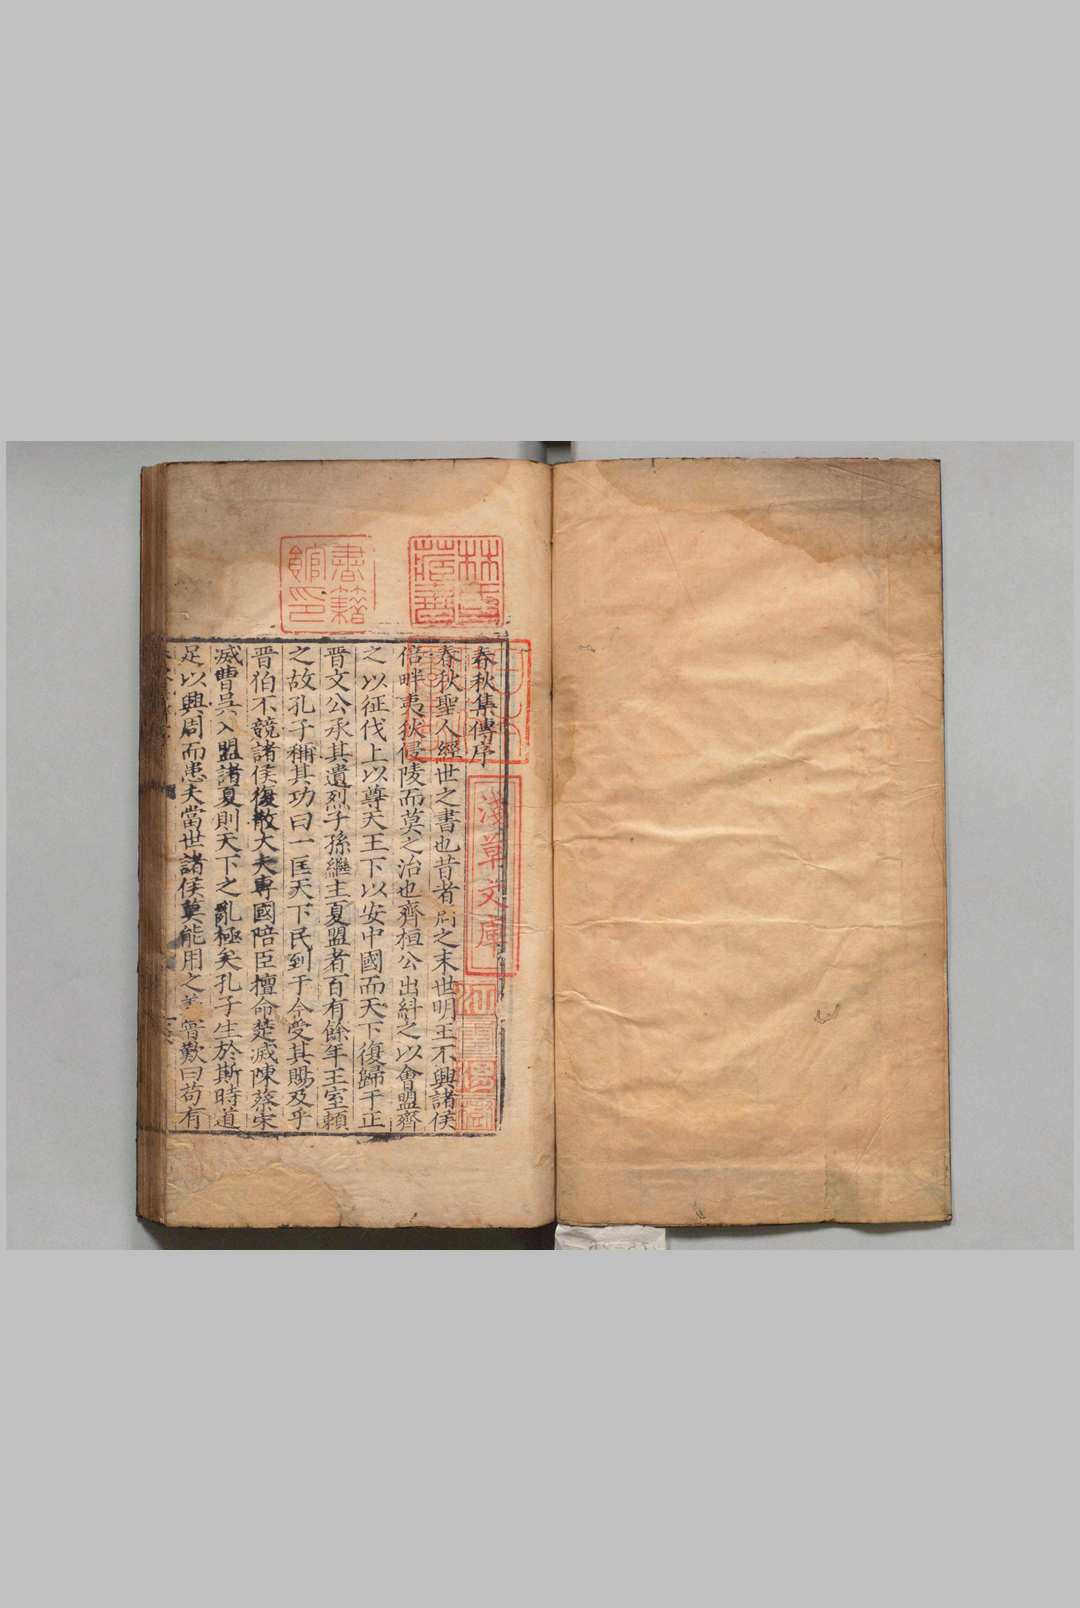 春秋集傳序
春秋聖人經世之書也昔者周之末世明王不興諸侯
倍畔夷狄侵陵而莫之治也齊桓公出糾之以會盟齊
之以征伐上以尊天王下以安中國而天下復歸于正
晋文公承其遺烈子孫繼主夏盟者百有餘年王室賴
之故孔子稱其功曰一匡天下民到于今受其賜及乎
晋伯不競諸侯復散大夫專國陪臣擅命楚滅陳蔡宋
滅曹吳入盟諸夏則天下之亂極矣孔子生於斯時道
足以興周而患夫當世諸侯莫能用之甞歎曰苟有
林氏藏書
書籍館印
淺草文庫
江雲渭樹